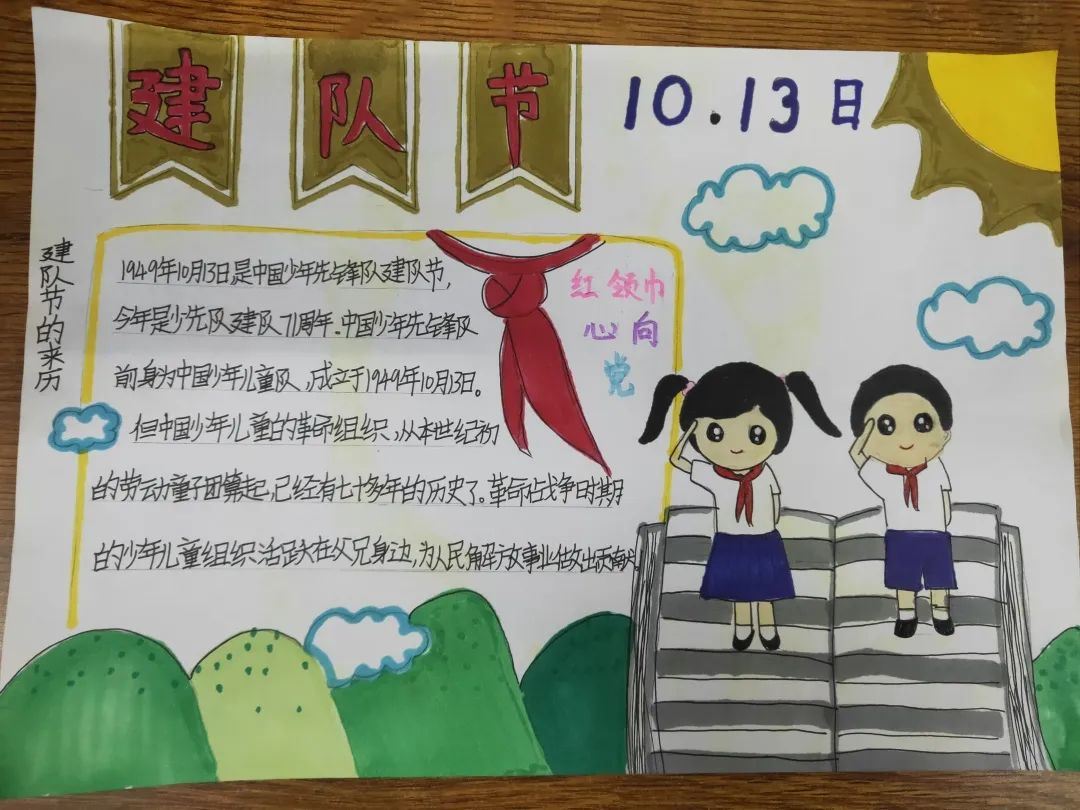 建队节
10.13日
建队节的来历
1949年10月13日是中国少年先锋队建队节,
今年是少先队建队71周年.中国少年先锋队
前身为中国少年儿童队,成立于1949年10月13日。
但中国少年儿童的革命组织,从本世纪初
的劳动童子团算起,已经有七十多年的历史了。革命战争时期
的少年儿童组织活跃在父兄身边,为人民解放事业做出贡献
红领巾
心向
党